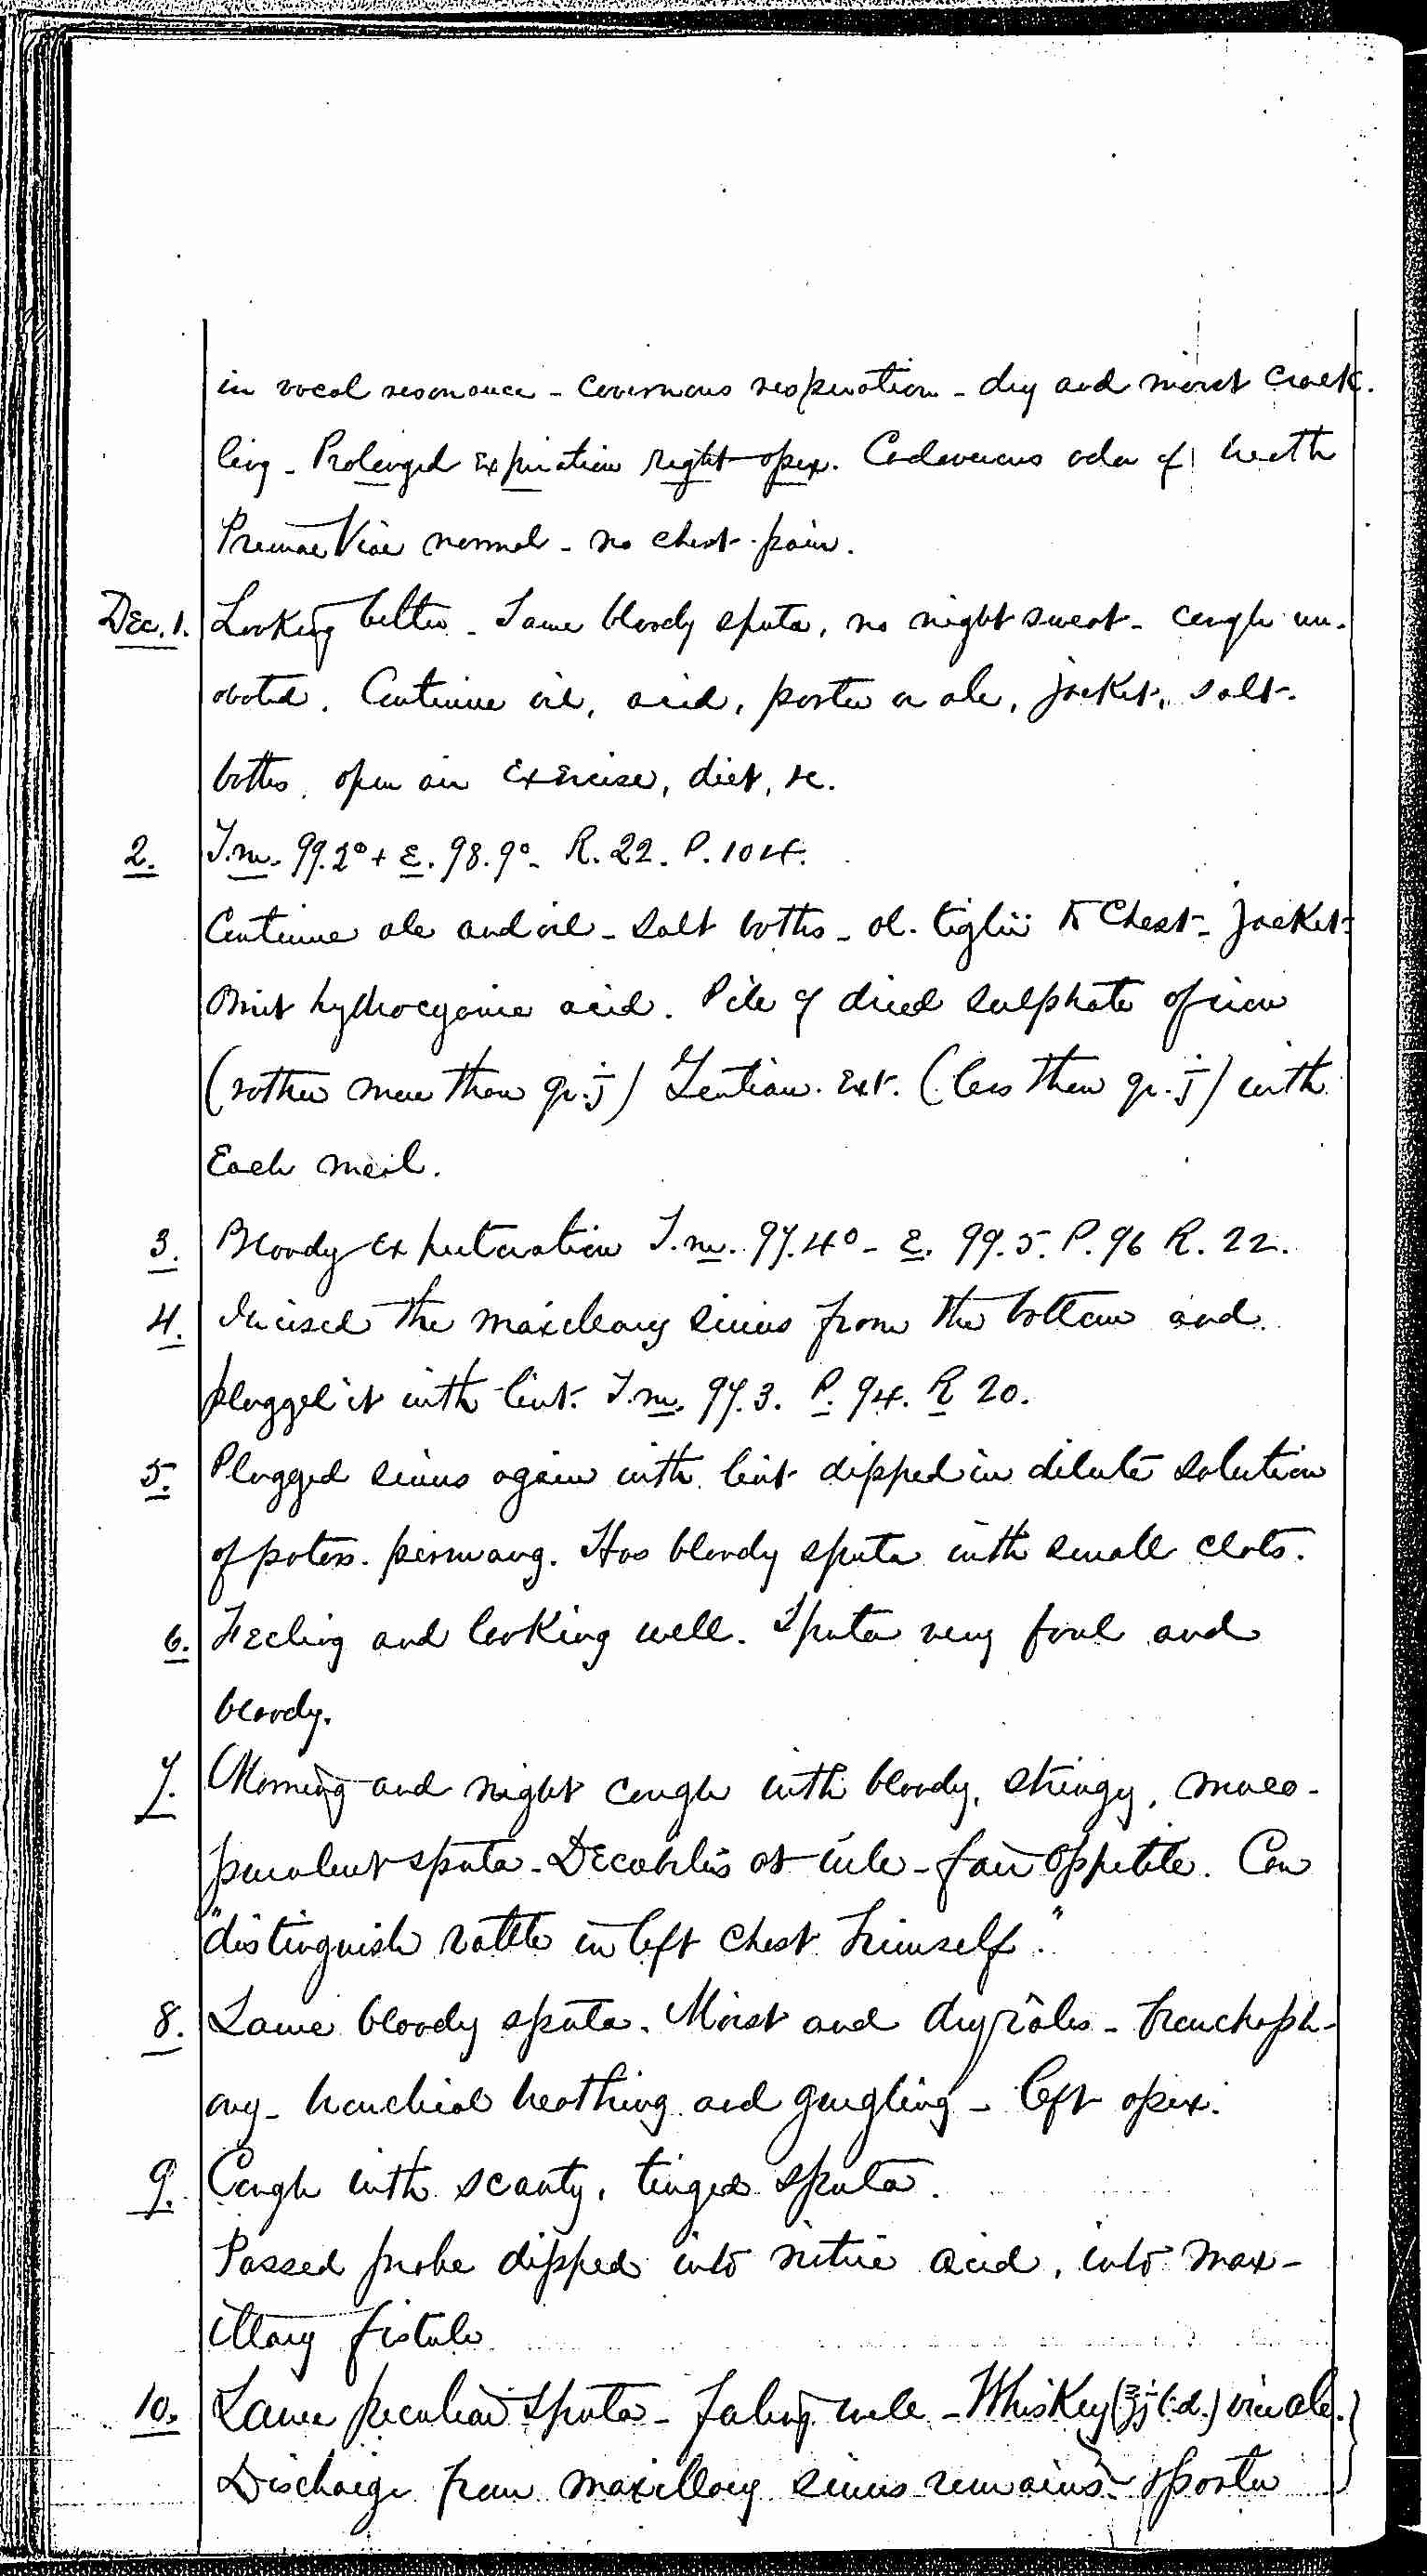 in vocal resonance - Cavernous respiration - dry and moist crack-
ling - Prolonged expiration right apex. Cadaverous odor of breath
Primae Viae normal - no chest pain.
Dec. 1. Looking better - Same bloody sputa, no night sweat - cough un-
abated. Continue oil, acid, porter or ale, jacket, salt-
baths, open air Exercise, diet, &c.
2. T.m. 99.2° + E. 98.9° - R. 22. P. 104.
Continue ale and oil - Salt baths - ol. tiglii to Chest - Jacket -
Omit hydrocyanic acid. Pill of dried sulphate of iron
(rather more than gr. j) Gentian. Ext. (less than gr. j) with
Each meal.
3. Bloody expectoration T.m. 97.4° - E. 99.5. P. 96 R. 22.
4. Incised the maxillary sinus from the bottom and
plugged it with lint. T.m. 97.3. P. 94. R 20.
5. Plugged sinus again with lint dipped in dilute solution
of potass. permang. Has bloody sputa with small clots.
6. Feeling and looking well. Sputa very foul and
bloody.
7. Morning and night cough with bloody, stringy, muco-
purulent sputa - Decubitus at will - fair appetite. Can
"distinguish rattle in left chest himself."
8. Same bloody sputa. Moist and dry râles - bronchoph-
ony - bronchial breathing and gurgling - left apex.
9. Cough with scanty, tinged sputa.
Passed probe dipped into nitric acid, into max-
illary fistula
10. Same peculiar sputa - well - Whiskey (℥j t.d.) vice ale.
Discharge from maxillary sinus remains - & porter